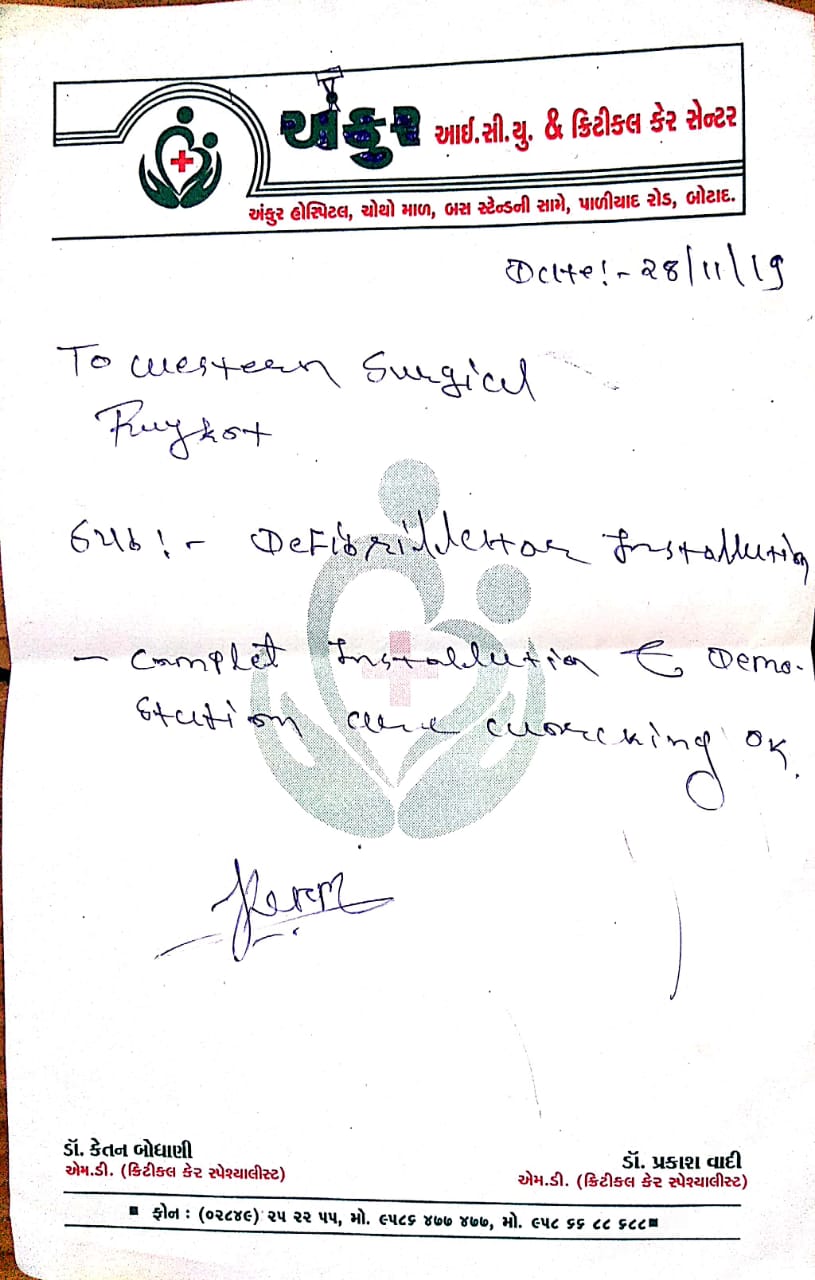 અંકુર આઈ.સી.યુ. & ક્રિટીકલ કેર સેન્ટર
અંકુર હોસ્પિટલ, ચોથો માળ, બસ સ્ટેન્ડની સામે, પાળીયાદ રોડ, બોટાદ.
Date:- 28/11/19
To Western Surgical
Rajkot
:- Defibrillator Installation
- Complet Installation & Demo-
station are working OK.
ડૉ. કેતન બોધાણી
એમ.ડી. (ક્રિટીકલ કેર સ્પેશ્યાલીસ્ટ)
ડૉ. પ્રકાશ વાદી
એમ.ડી. (ક્રિટીકલ કેર સ્પેશ્યાલીસ્ટ)
■ ફોન : (૦૨૮૪૯) ૨૫ ૨૨ ૫૫, મો. ૯૫૮૬ ૪૭૭ ૪૭૭, મો. ૯૫૮ ૬૬ ૮૮ ૬૮૮■